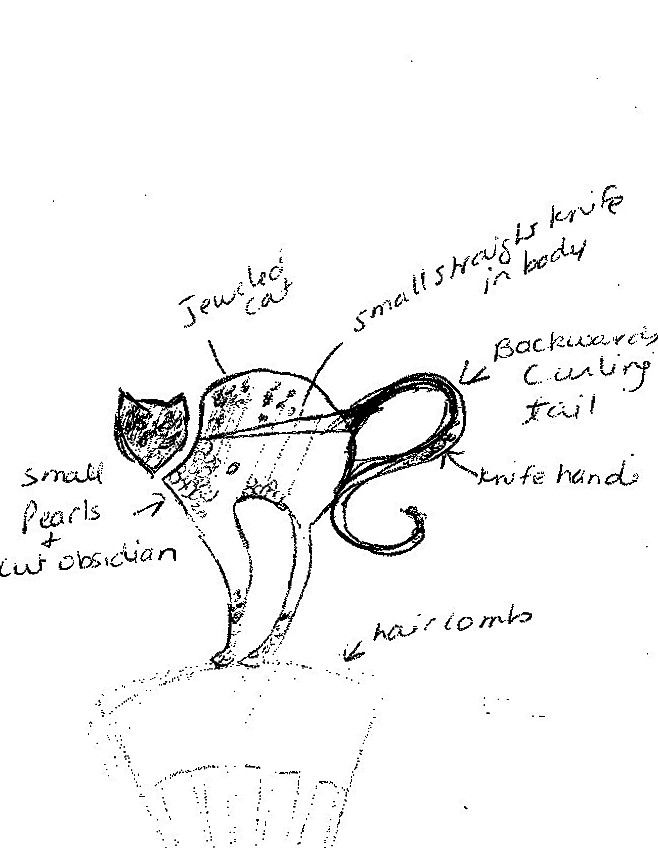 Jeweled
cat
small straight knife
in body
Backwards
Curling
tail
knife handle
small
Pearls
+
cut obsidian
hair combs